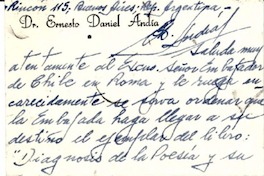 Rincon 113, Buenos Aires, Rep. Argentina
Dr. Ernesto Daniel Andía
E. D. Andía
Saluda muy
atentamente al Excmo. Señor Embajador
de Chile en Roma y le ruega en-
carecidamente se sirva ordenar que
la Embajada haga llegar a su
destino el ejemplar del libro:
"Diagnosis de la Poesía y su